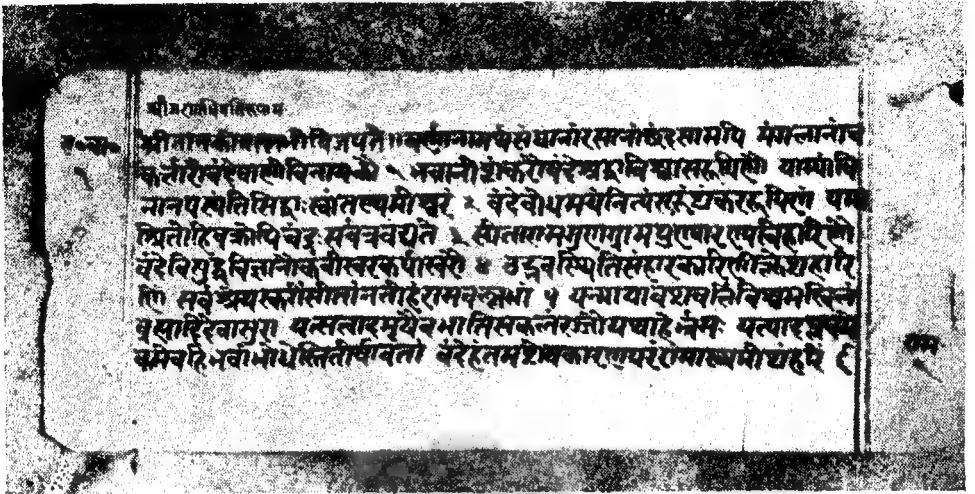 श्रीजानकीवल्लभोविजयते॥ वर्णानामर्थसंघानांरसानांछंदसामपि मंगलानांच
कर्तारौवंदेवाणीविनायकौ १ भवानीशंकरौवंदेश्रद्धाविश्वासरूपिणौ याभ्यांवि
नानपश्यंतिसिद्धाःस्वांतस्थमीश्वरं २ वंदेवोधमयंनित्यंगुरुंशंकररूपिणं यमा
श्रितोहिवक्रोपिचंद्रःसर्वत्रवंद्यते ३ सीतारामगुणग्रामपुण्यारण्यविहारिणौ
वंदेविशुद्धविज्ञानौकवीस्वरकपीस्वरौ ४ उद्भवस्थितिसंहारकारिणींक्लेशहारि
णीं सर्वश्रेयस्करींसीतांनतोहंरामवल्लभां ५ यन्मायावशवर्तिविश्वमखिलं
व्रह्मादिदेवासुरा यत्सत्वादमृषैवभातिसकलंरज्जौयथाहेर्भ्रमः यत्पादप्लवमे
कमेवहिभवांभोधेस्तितीर्षावतां वंदेहंतमशेषकारणपरंरामाख्यमीशंहरिं ६
राम